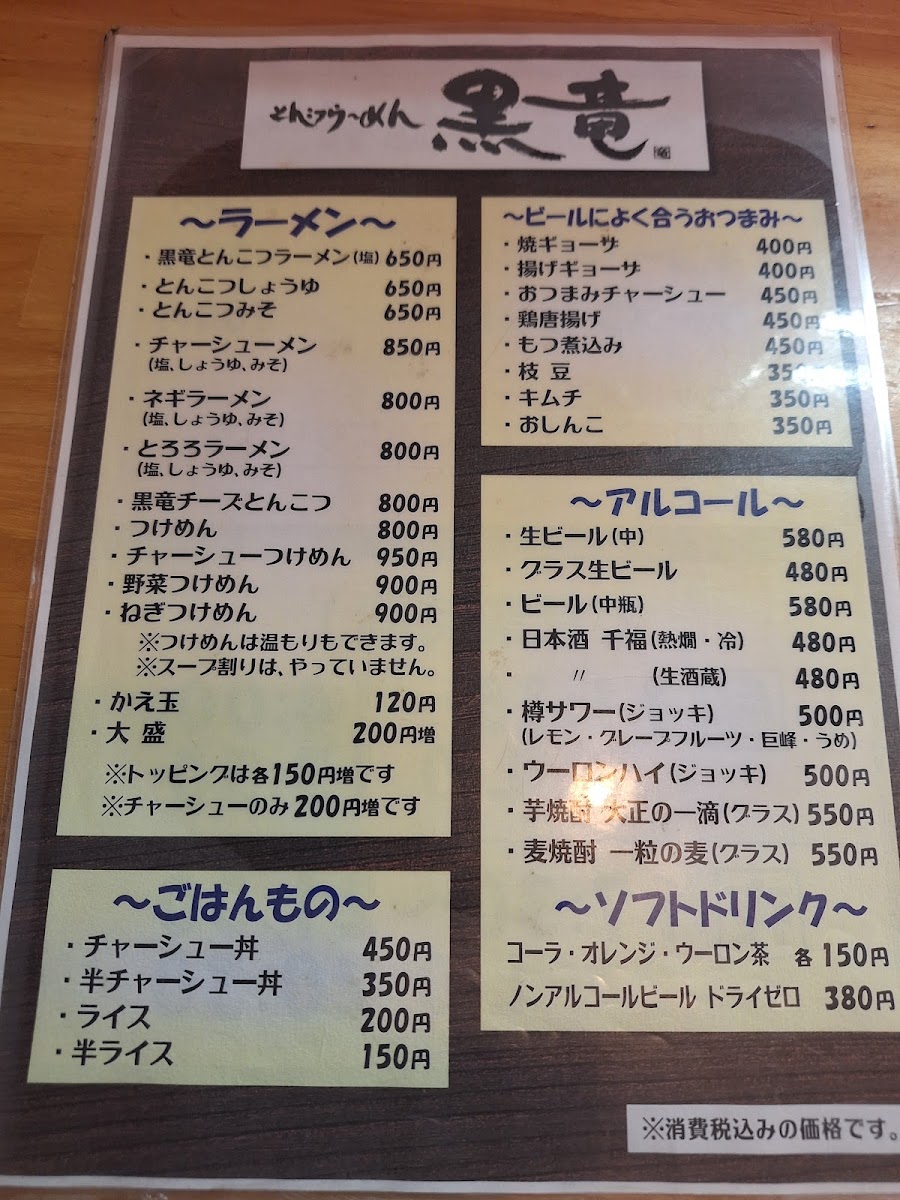 とんこつらーめん 黒竜
～ラーメン～
・黒竜とんこつラーメン(塩) 650円
・とんこつしょうゆ 650円
・とんこつみそ 650円
・チャーシューメン 850円
(塩、しょうゆ、みそ)
・ネギラーメン 800円
(塩、しょうゆ、みそ)
・とろろラーメン 800円
(塩、しょうゆ、みそ)
・黒竜チーズとんこつ 800円
・つけめん 800円
・チャーシューつけめん 950円
・野菜つけめん 900円
・ねぎつけめん 900円
※つけめんは温もりもできます。
※スープ割りは、やっていません。
・かえ玉 120円
・大 盛 200円増
※トッピングは各150円増です
※チャーシューのみ200円増です
～ごはんもの～
・チャーシュー丼 450円
・半チャーシュー丼 350円
・ライス 200円
・半ライス 150円
～ビールによく合うおつまみ～
・焼ギョーザ 400円
・揚げギョーザ 400円
・おつまみチャーシュー 450円
・鶏唐揚げ 450円
・もつ煮込み 450円
・枝 豆 350円
・キムチ 350円
・おしんこ 350円
～アルコール～
・生ビール(中) 580円
・グラス生ビール 480円
・ビール(中瓶) 580円
・日本酒 千福(熱燗・冷) 480円
・ 〃 (生酒蔵) 480円
・樽サワー(ジョッキ) 500円
(レモン・グレープフルーツ・巨峰・うめ)
・ウーロンハイ(ジョッキ) 500円
・芋焼酎 大正の一滴(グラス) 550円
・麦焼酎 一粒の麦(グラス) 550円
～ソフトドリンク～
コーラ・オレンジ・ウーロン茶 各150円
ノンアルコールビール ドライゼロ 380円
※消費税込みの価格です。